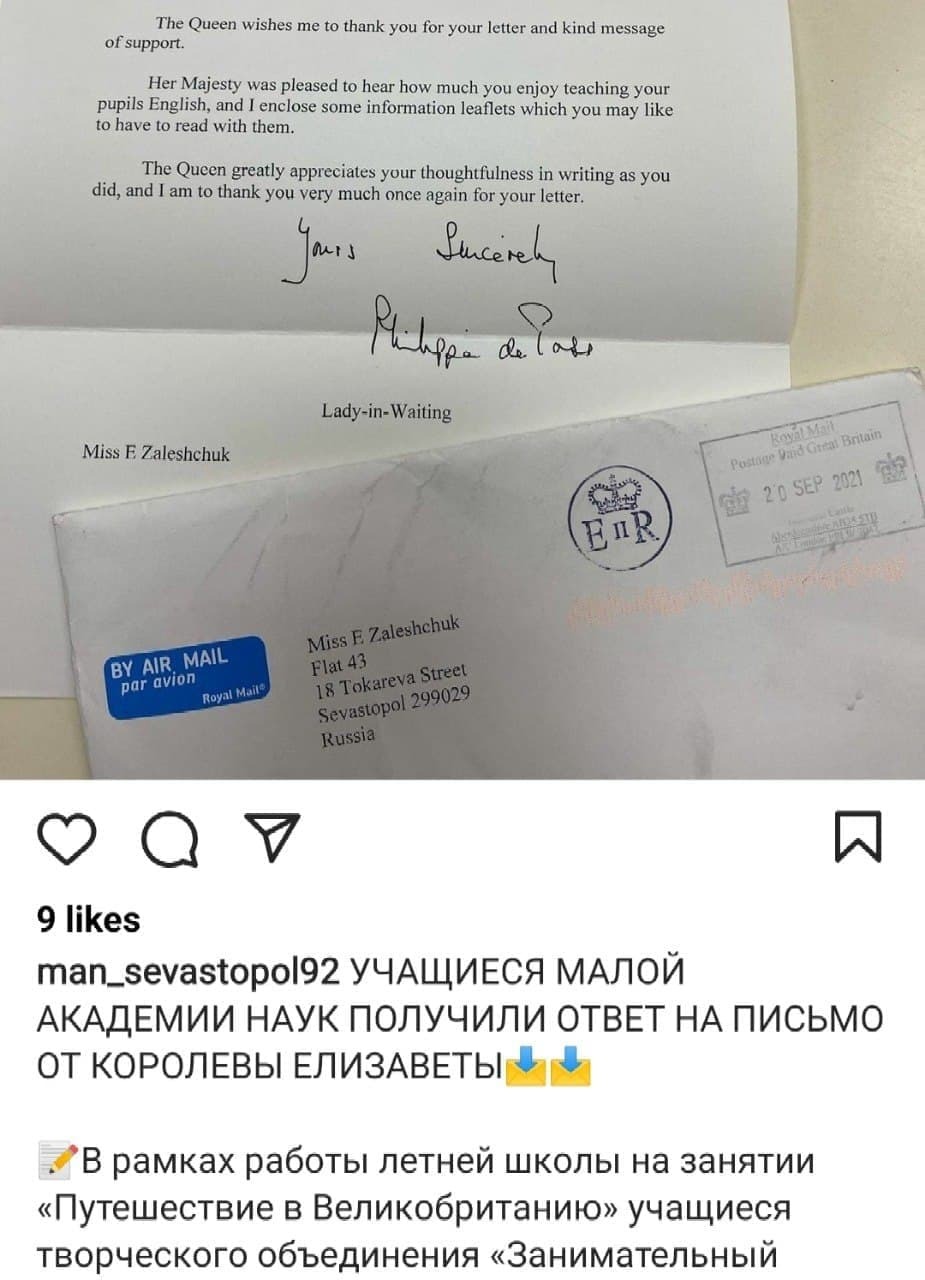 The Queen wishes me to thank you for your letter and kind message
of support.
Her Majesty was pleased to hear how much you enjoy teaching your
pupils English, and I enclose some information leaflets which you may like
to have to read with them.
The Queen greatly appreciates your thoughtfulness in writing as you
did, and I am to thank you very much once again for your letter.
Yours Sincerely
Philippa de Pass
Lady-in-Waiting
Miss E Zaleshchuk
Royal Mail
Postage Paid Great Britain
20 SEP 2021
E II R
BY AIR MAIL
par avion
Royal Mail®
Miss E Zaleshchuk
Flat 43
18 Tokareva Street
Sevastopol 299029
Russia
9 likes
man_sevastopol92 УЧАЩИЕСЯ МАЛОЙ
АКАДЕМИИ НАУК ПОЛУЧИЛИ ОТВЕТ НА ПИСЬМО
ОТ КОРОЛЕВЫ ЕЛИЗАВЕТЫ📩📩
📝В рамках работы летней школы на занятии
«Путешествие в Великобританию» учащиеся
творческого объединения «Занимательный